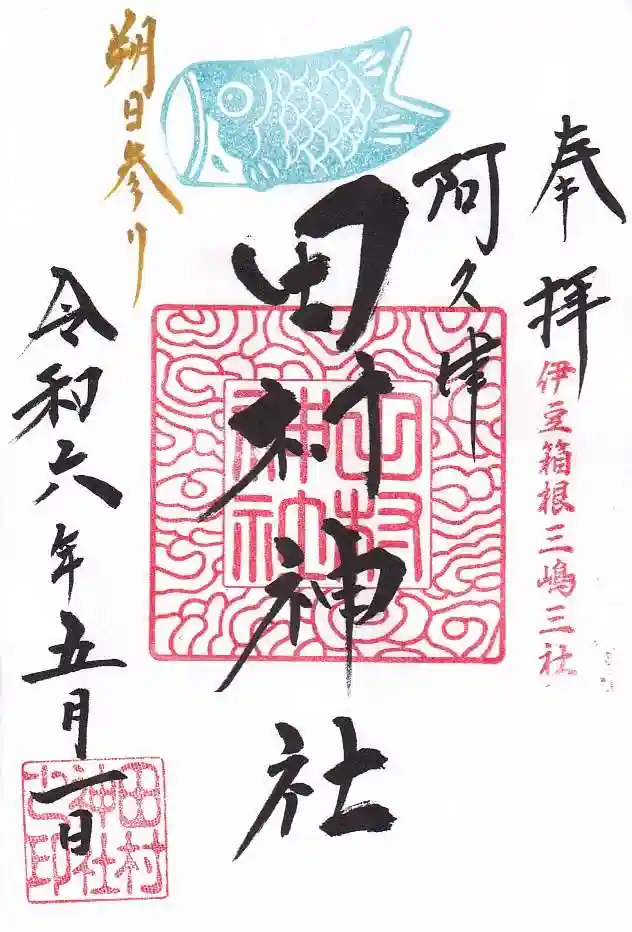 奉拝
伊豆箱根三嶋三社
阿久津
田村神社
田村
神社
朔日参り
令和六年五月一日
田村
神社
之印